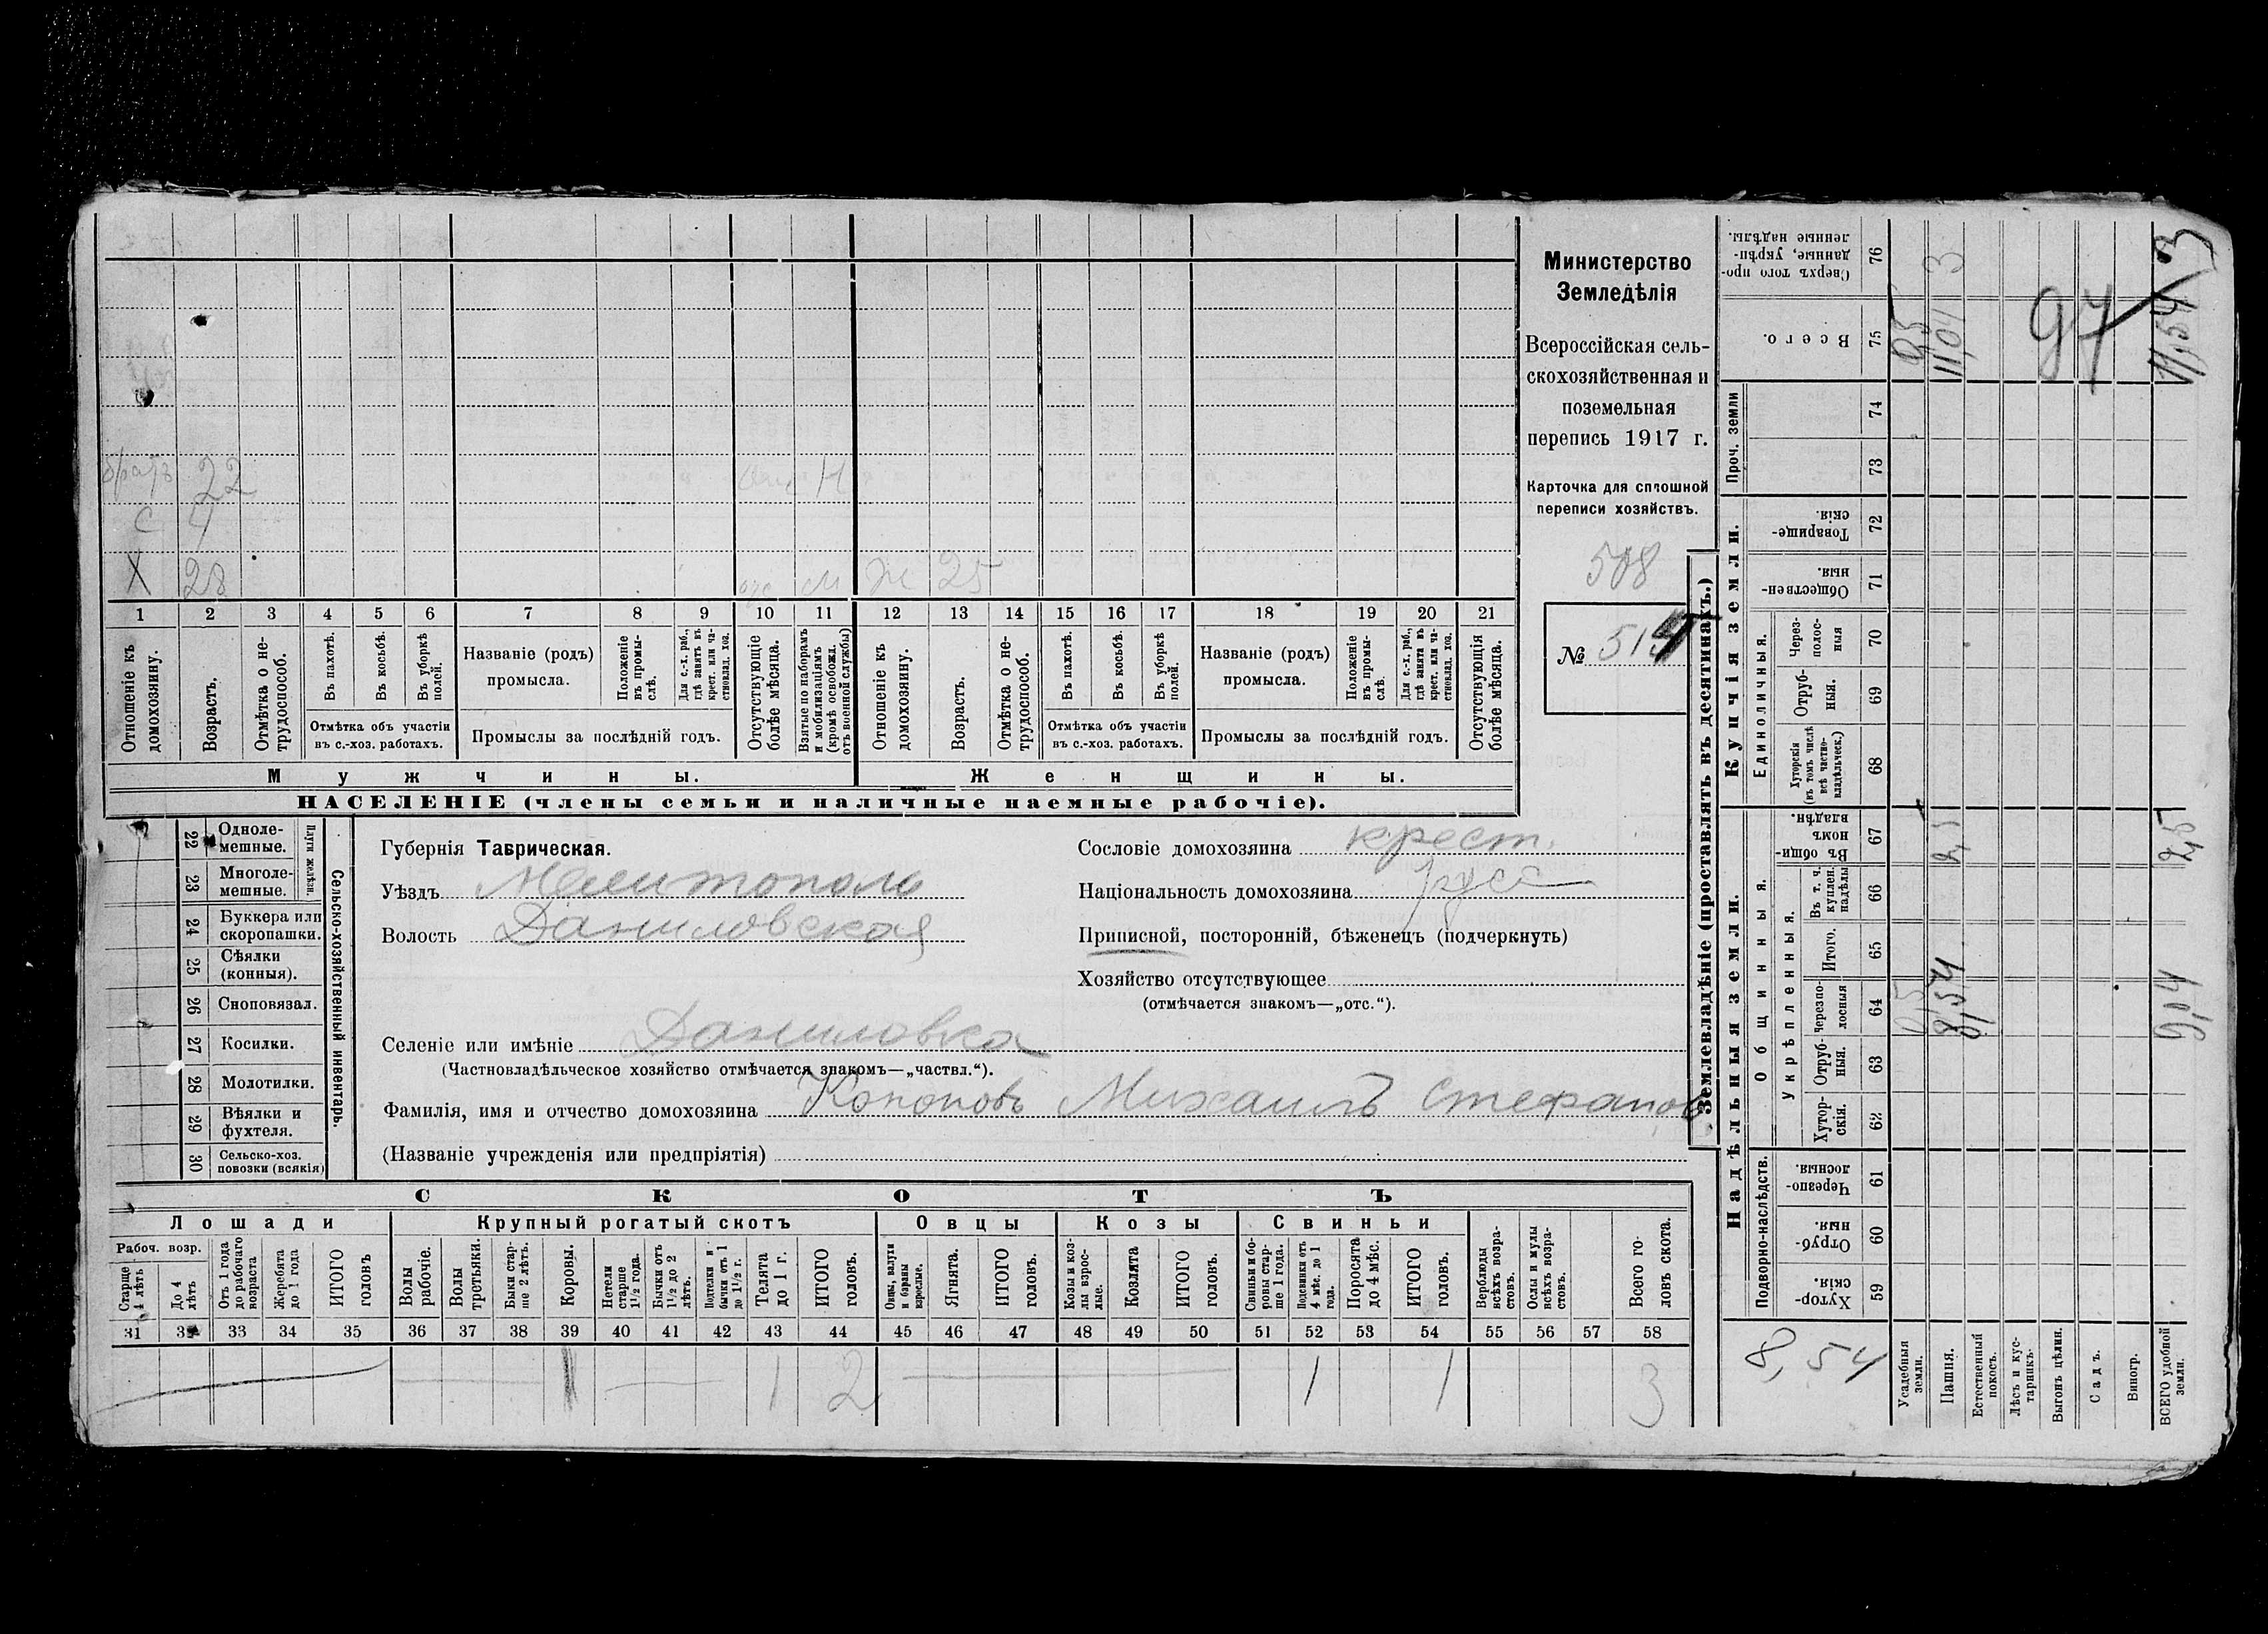 братъ 22 отс Н
с 4
Х 28 отс М Ж 25
1 2 3 4 5 6 7 8 9 10 11 12 13 14 15 16 17 18 19 20 21
Отношеніе къ домохозяину.
Возрастъ.
Отмѣтка о нетрудоспособ.
Въ пахотѣ.
Въ косьбѣ.
Въ уборкѣ полей.
Отмѣтка объ участіи
въ с.-хоз. работахъ.
Названіе (родъ)
промысла.
Положеніе въ промыслѣ.
Для с.-х. раб., гдѣ занятъ въ крест. или частновлад. хоз.
Промыслы за послѣдній годъ.
Отсутствующіе болѣе мѣсяца.
Взятые по наборамъ и мобилизаціямъ (кромѣ освобожд. отъ военной службы)
Отношеніе къ домохозяину.
Возрастъ.
Отмѣтка о нетрудоспособ.
Въ пахотѣ.
Въ косьбѣ.
Въ уборкѣ полей.
Отмѣтка объ участіи
въ с.-хоз. работахъ.
Названіе (родъ)
промысла.
Положеніе въ промыслѣ.
Для с.-х. раб., гдѣ занята въ крест. или частновлад. хоз.
Промыслы за послѣдній годъ.
Отсутствующія болѣе мѣсяца.
Мужчины. Женщины.
НАСЕЛЕНІЕ (члены семьи и наличные наемные рабочіе).
Министерство
Земледѣлія
Всероссійская сель-
скохозяйственная и
поземельная
перепись 1917 г.
Карточка для сплошной
переписи хозяйствъ.
508
№ 519
22 Одноле-
мешные.
23 Многоле-
мешные.
Плуги желѣзн.
24 Буккера или
скоропашки.
25 Сѣялки
(конныя).
26 Сноповязал.
27 Косилки.
28 Молотилки.
29 Вѣялки и
фухтеля.
30 Сельско-хоз.
повозки (всякія)
Сельско-хозяйственный инвентарь.
Губернія Таврическая.
Уѣздъ Мелитополь
Волость Даниловская
Сословіе домохозяина крест.
Національность домохозяина русс
Приписной, посторонній, бѣженецъ (подчеркнуть)
Хозяйство отсутствующее
(отмѣчается знакомъ—„отс.“).
Селеніе или имѣніе Даниловка
(Частновладѣльческое хозяйство отмѣчается знакомъ—„частвл.“).
Фамилія, имя и отчество домохозяина Кононовъ Михаилъ Стефановъ
(Названіе учрежденія или предпріятія)
СКОТЪ
Лошади Крупный рогатый скотъ Овцы Козы Свиньи
Рабоч. возр.
Старше 4 лѣтъ
До 4 лѣтъ
Отъ 1 года до рабочаго возраста
Жеребята до 1 года
ИТОГО головъ
Волы рабочіе.
Волы третьяки.
Быки старше 2 лѣтъ.
Коровы.
Нетели старше 1½ года.
Бычки отъ 1½ до 2 лѣтъ.
Подтелки и бычки отъ 1 до 1½ г.
Телята до 1 г.
ИТОГО головъ.
Овцы, валухи и бараны взрослые.
Ягнята.
ИТОГО головъ.
Козы и козлы взрослые.
Козлята
ИТОГО головъ.
Свиньи и боровы старше 1 года.
Подсвинки отъ 4 мѣс. до 1 года.
Поросята до 4 мѣс.
ИТОГО головъ.
Верблюды всѣхъ возрастовъ.
Ослы и мулы всѣхъ возрастовъ.
Всего головъ скота.
31 32 33 34 35 36 37 38 39 40 41 42 43 44 45 46 47 48 49 50 51 52 53 54 55 56 57 58
1 1 2 1 1 3
Землевладѣніе (проставлять въ десятинахъ.)
Надѣльныя земли. Купчія земли. Проч. земли
Подворно-наслѣдств.
Общинныя.
Укрѣпленныя.
Единоличныя.
Хуторскія. 59
Отрубныя. 60
Черезполосныя. 61
Хуторскія. 62
Отрубныя. 63
Черезполосныя 64
Итого. 65
Въ т. ч. куплен. надѣлы 66
Въ общинномъ владѣн. 67
Хуторскія (въ томъ числѣ всѣ частновладѣльческ.) 68
Отрубныя. 69
Черезполосныя 70
Общественныя. 71
Товарищескія. 72
73
74
Всего. 75
Сверхъ того проданные, укрѣпленные надѣлы. 76
8,54
Усадебныя земли. 0,5 0,5
Пашня. 8,54 2,5 11,04 3
Естественный покосъ.
Лѣсъ и кустарникъ.
Выгонъ цѣлин.
Садъ.
Виногр.
ВСЕГО удобной земли. 9,04 2,5 11,54 3
97